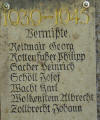 1939-1945
Vermißte
Reitmair Georg
Rottenfußer Philipp
Sacher Heinrich
Schöll Josef
Wacht Karl
Wolkenstein Albrecht
Vollbrecht Johann